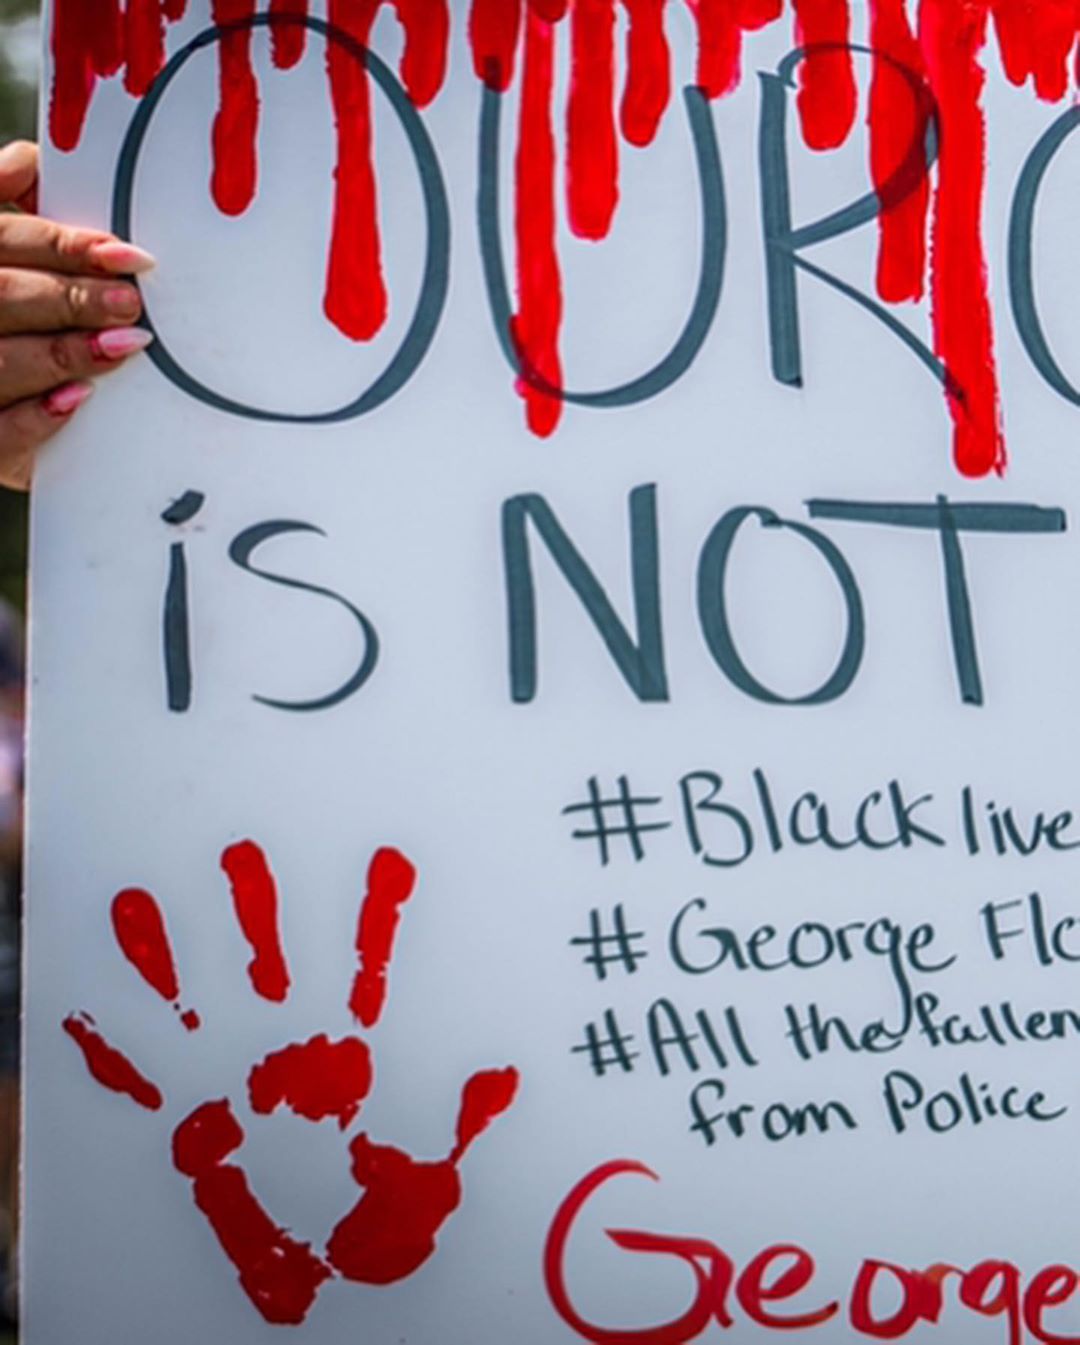 OUR
is NOT
#Black live
#George Flo
#All the fallen
from Police
George